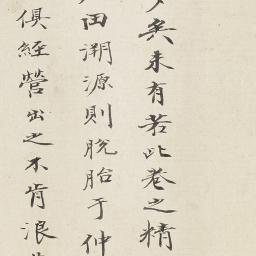 矣未有若此卷之精
田溯源則脫胎于仲
俱經營出之不肯浪